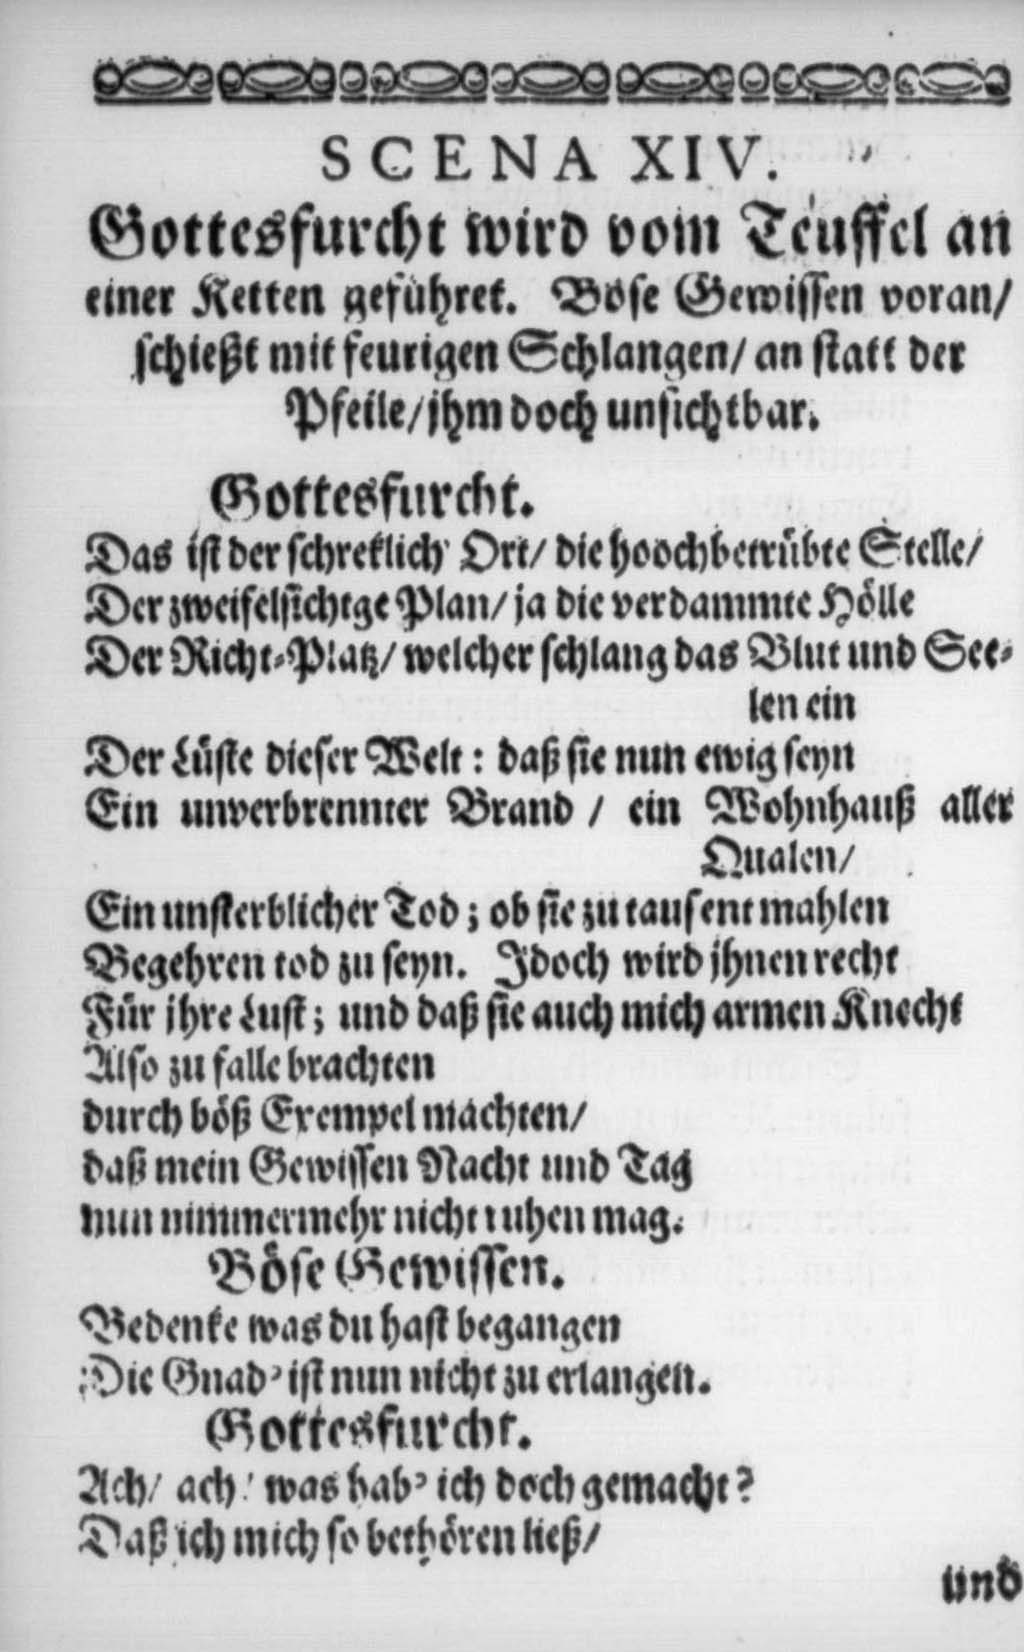 SCENA XIV.
Gottesfurcht wird vom Teuffel an
einer Ketten geführet. Böse Gewissen voran/
schießt mit feurigen Schlangen/ an statt der
Pfeile/ jhm doch unsichtbar.
Gottesfurcht.
Das ist der schreklich' Ort/ die hoochbetrübte Stelle/
Der zweifelsichtge Plan/ ja die verdammte Hölle
Der Richt-Platz/ welcher schlang das Blut und See-
len ein
Der Lüste dieser Welt: daß sie nun ewig seyn
Ein unverbrennter Brand / ein Wohnhauß aller
Qualen/
Ein unsterblicher Tod; ob sie zu tausent mahlen
Begehren tod zu seyn. Jdoch wird jhnen recht
Für jhre Lust; und daß sie auch mich armen Knecht
Also zu falle brachten
durch böß Exempel machten/
daß mein Gewissen Nacht und Tag
nun nimmermehr nicht ruhen mag.
Böse Gewissen.
Bedenke was du hast begangen
Die Gnad' ist nun nicht zu erlangen.
Gottesfurcht.
Ach/ ach! was hab' ich doch gemacht?
Daß ich mich so bethören ließ/
und